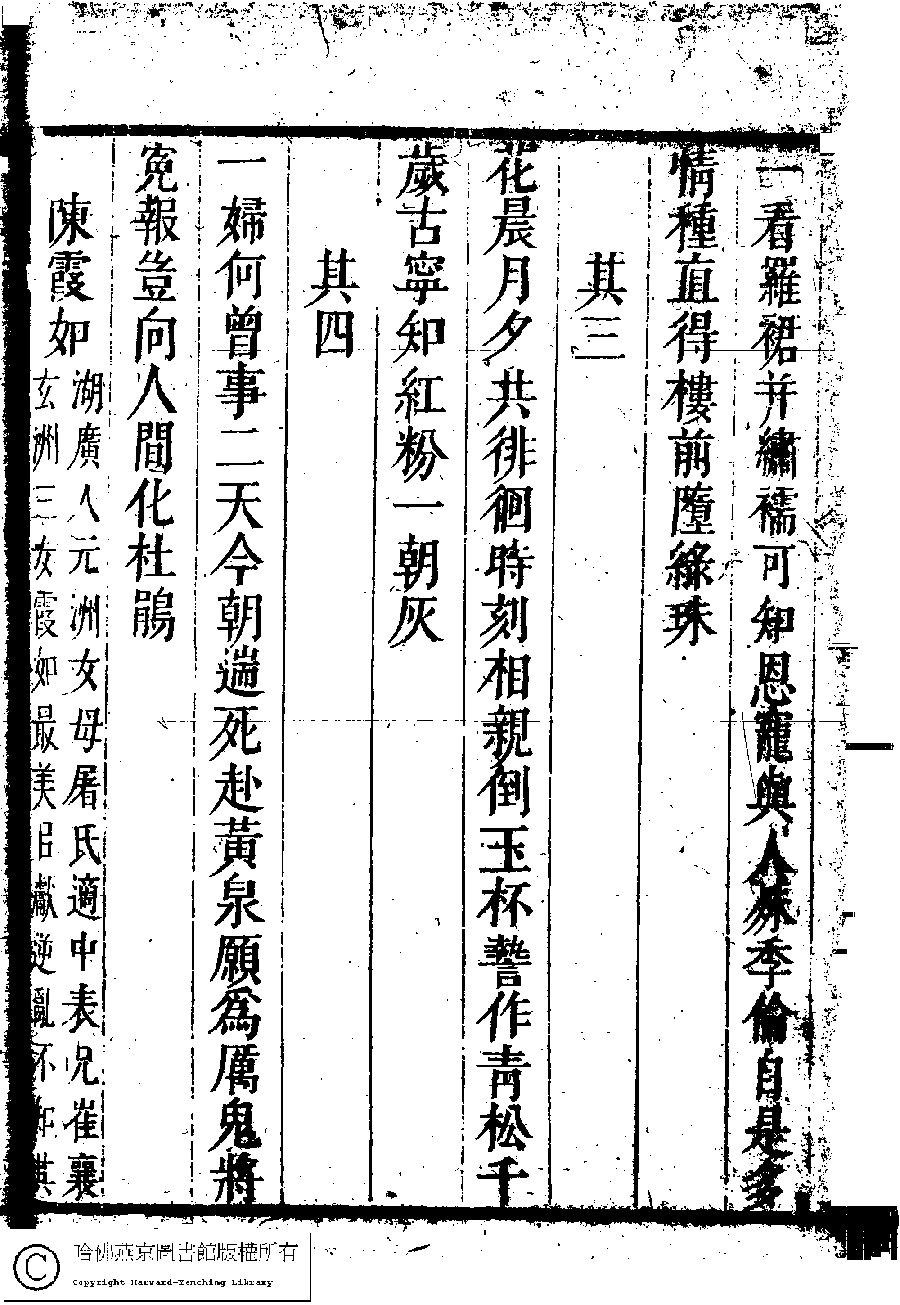 一看羅裙并繡襦可知恩寵與人殊季倫自是多
情種直得樓前墮綠珠
其三
花晨月夕共徘徊時刻相親倒玉杯誓作青松千
歲古寧知紅粉一朝灰
其四
一婦何曾事二天今朝遄死赴黃泉願為厲鬼將
寃報豈向人間化杜鵑
陳霞如
湖廣人元洲女母屠氏適中表兄崔襄
玄洲三女霞如最美 獻逆亂不知其
哈佛燕京圖書館版權所有
Copyright Harvard-Yenching Library